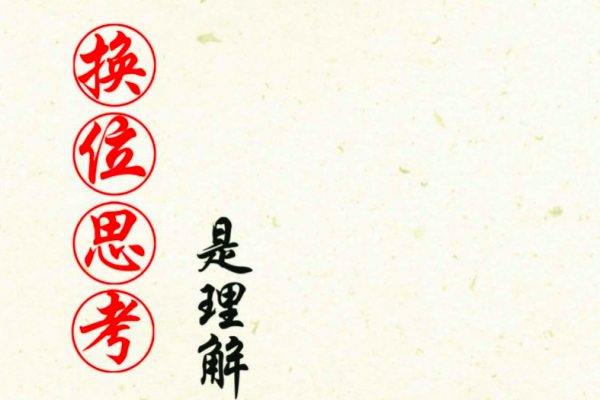 换位思考
是理解